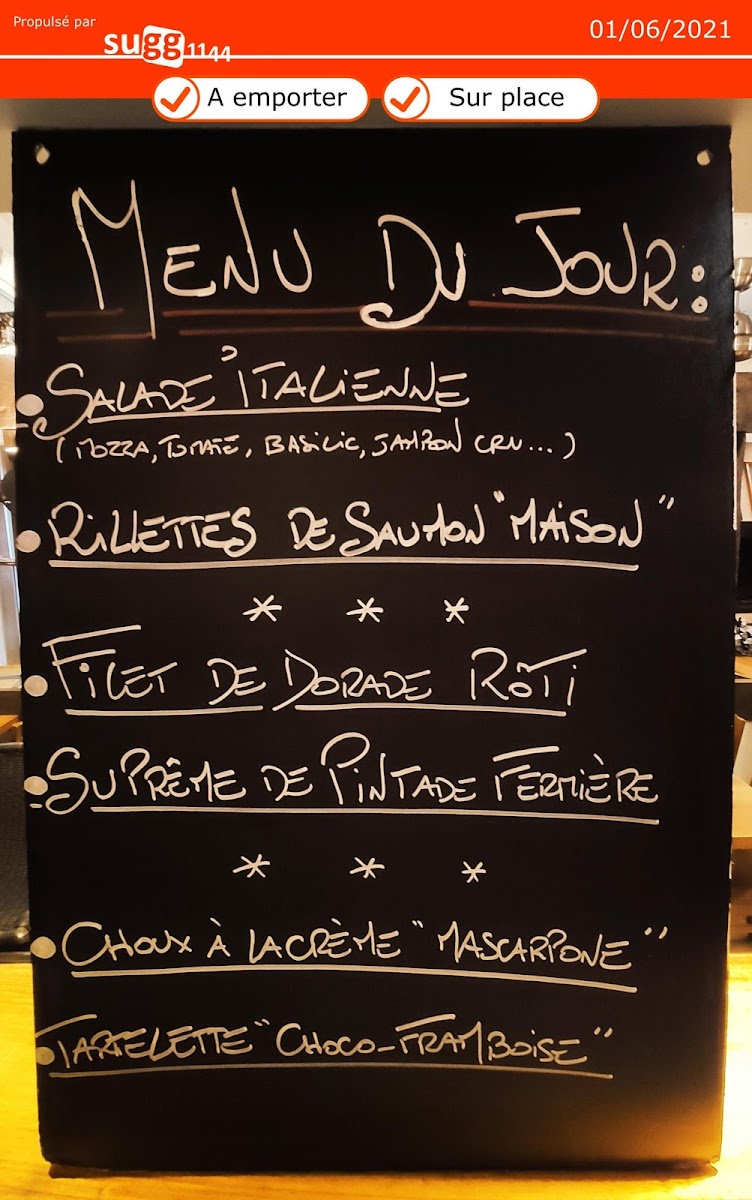 Propulsé par
sugg1144
01/06/2021
A emporter
Sur place
MENU DU JOUR:
SALADE 'ITALIENNE
(MOZZA, TOMATE, BASILIC, JAMBON CRU...)
RILLETTES DE SAUMON "MAISON"
* * *
FILET DE DORADE RÔTI
SUPRÊME DE PINTADE FERMIÈRE
* * *
CHOUX À LA CRÈME "MASCARPONE"
TARTELETTE "CHOCO-FRAMBOISE"